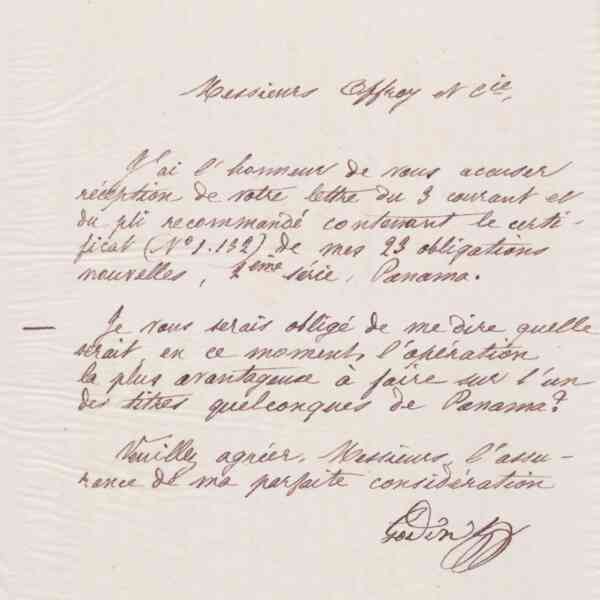 Messieurs Offroy et Cie,
J'ai l'honneur de vous accuser
réception de votre lettre du 3 courant et
du pli recommandé contenant le certi-
ficat (No 1.132) de mes 23 obligations
nouvelles, 2ème série, Panama.
— Je vous serais obligé de me dire quelle
serait en ce moment, l'opération
la plus avantageuse à faire sur l'un
des titres quelconques de Panama?
Veuillez agréer, Messieurs, l'assu-
rance de ma parfaite considération
Godin